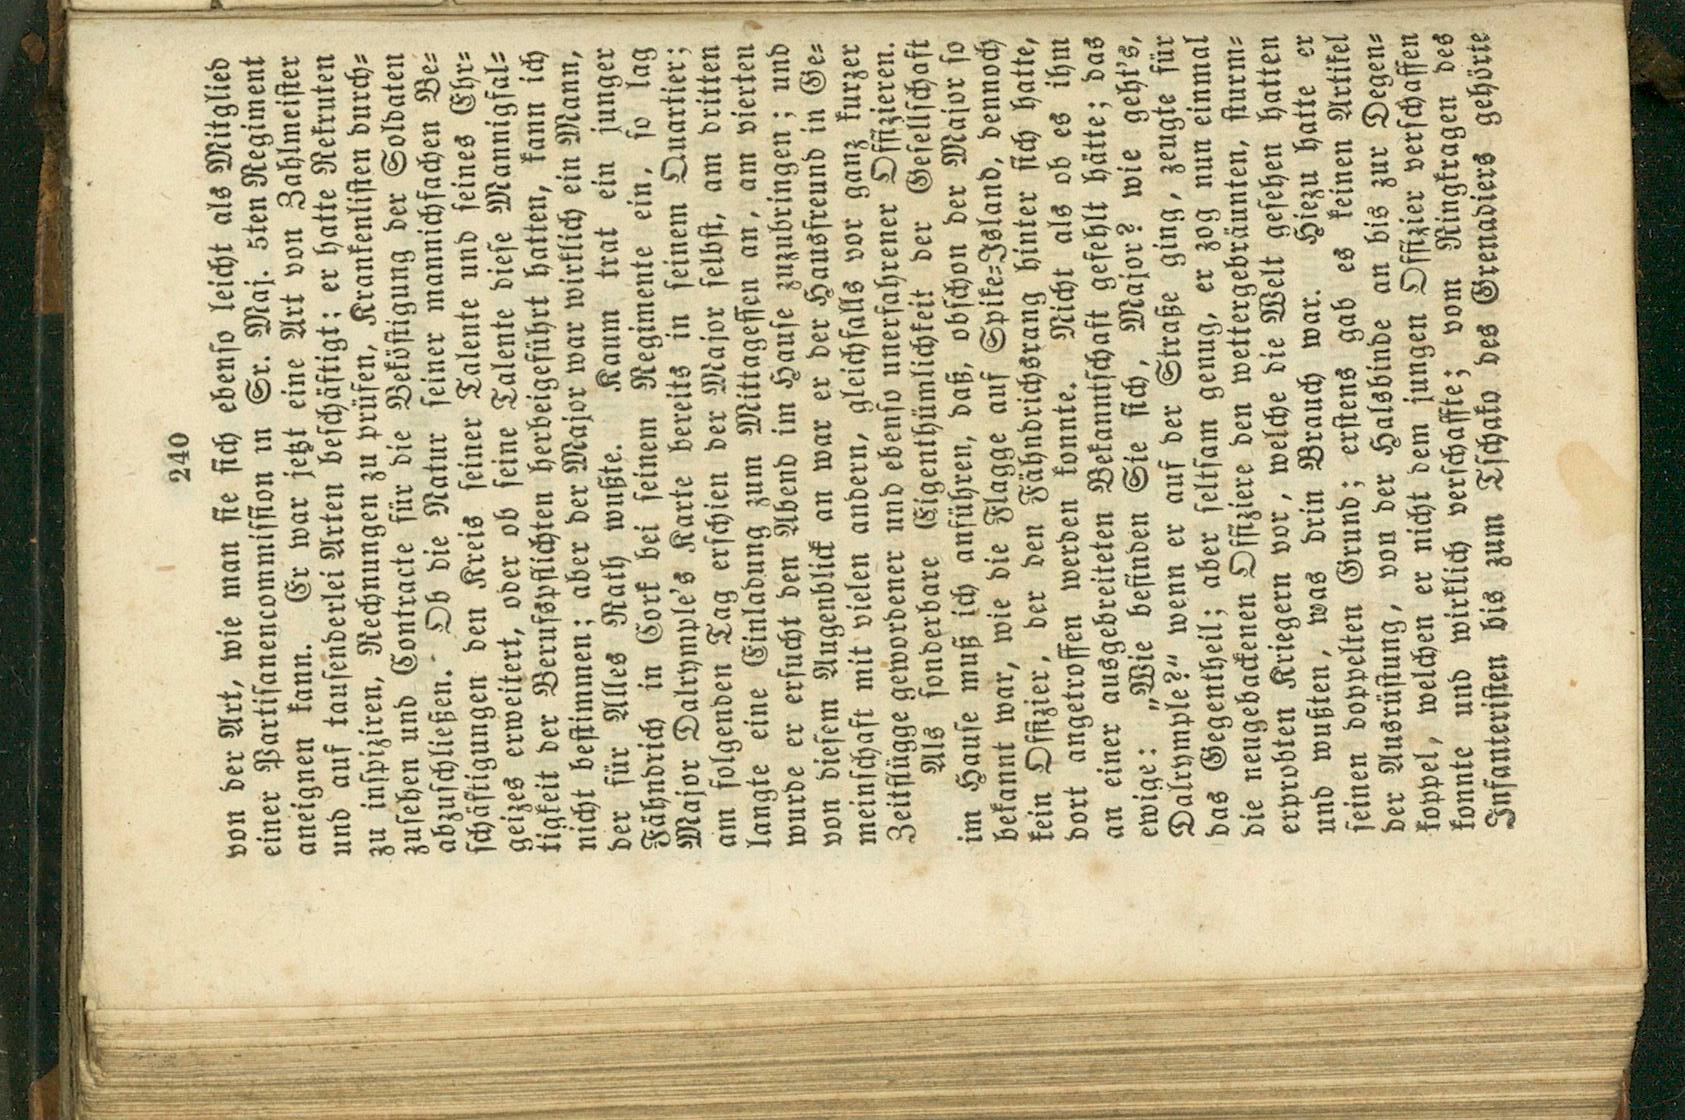 240
von der Art, wie man sie sich ebenso leicht als Mitglied
einer Partisanencommission in Sr. Maj. 5ten Regiment
aneignen kann. Er war jetzt eine Art von Zahlmeister
und auf tausenderlei Arten beschäftigt; er hatte Rekruten
zu inspiziren, Rechnungen zu prüfen, Krankenlisten durch-
zusehen und Contracte für die Beköstigung der Soldaten
abzuschließen. Ob die Natur seiner mannichfachen Be-
schäftigungen den Kreis seiner Talente und seines Ehr-
geizes erweitert, oder ob seine Talente diese Mannigfal-
tigkeit der Berufspflichten herbeigeführt hatten, kann ich
nicht bestimmen; aber der Major war wirklich ein Mann,
der für Alles Rath wußte. Kaum trat ein junger
Fähndrich in Cork bei seinem Regimente ein, so lag
Major Dalrymple's Karte bereits in seinem Quartier;
am folgenden Tag erschien der Major selbst, am dritten
langte eine Einladung zum Mittagessen an, am vierten
wurde er ersucht den Abend im Hause zuzubringen; und
von diesem Augenblick an war er der Hausfreund in Ge-
meinschaft mit vielen andern, gleichfalls vor ganz kurzer
Zeit flügge gewordener und ebenso unerfahrener Offizieren.
Als sonderbare Eigenthümlichkeit der Gesellschaft
im Hause muß ich anführen, daß, obschon der Major so
bekannt war, wie die Flagge auf Spike-Island, dennoch
kein Offizier, der den Fähndrichsrang hinter sich hatte,
dort angetroffen werden konnte. Nicht als ob es ihm
an einer ausgebreiteten Bekanntschaft gefehlt hätte; das
ewige: „Wie befinden Sie sich, Major? wie geht's,
Dalrymple?“ wenn er auf der Straße ging, zeugte für
das Gegentheil; aber seltsam genug, er zog nun einmal
die neugebackenen Offiziere den wettergebräunten, sturm-
erprobten Kriegern vor, welche die Welt gesehen hatten
und wußten, was drin Brauch war. Hiezu hatte er
seinen doppelten Grund; erstens gab es keinen Artikel
der Ausrüstung, von der Halsbinde an bis zur Degen-
koppel, welchen er nicht dem jungen Offizier verschaffen
konnte und wirklich verschaffte; vom Ringkragen des
Infanteristen bis zum Tschako des Grenadiers gehörte